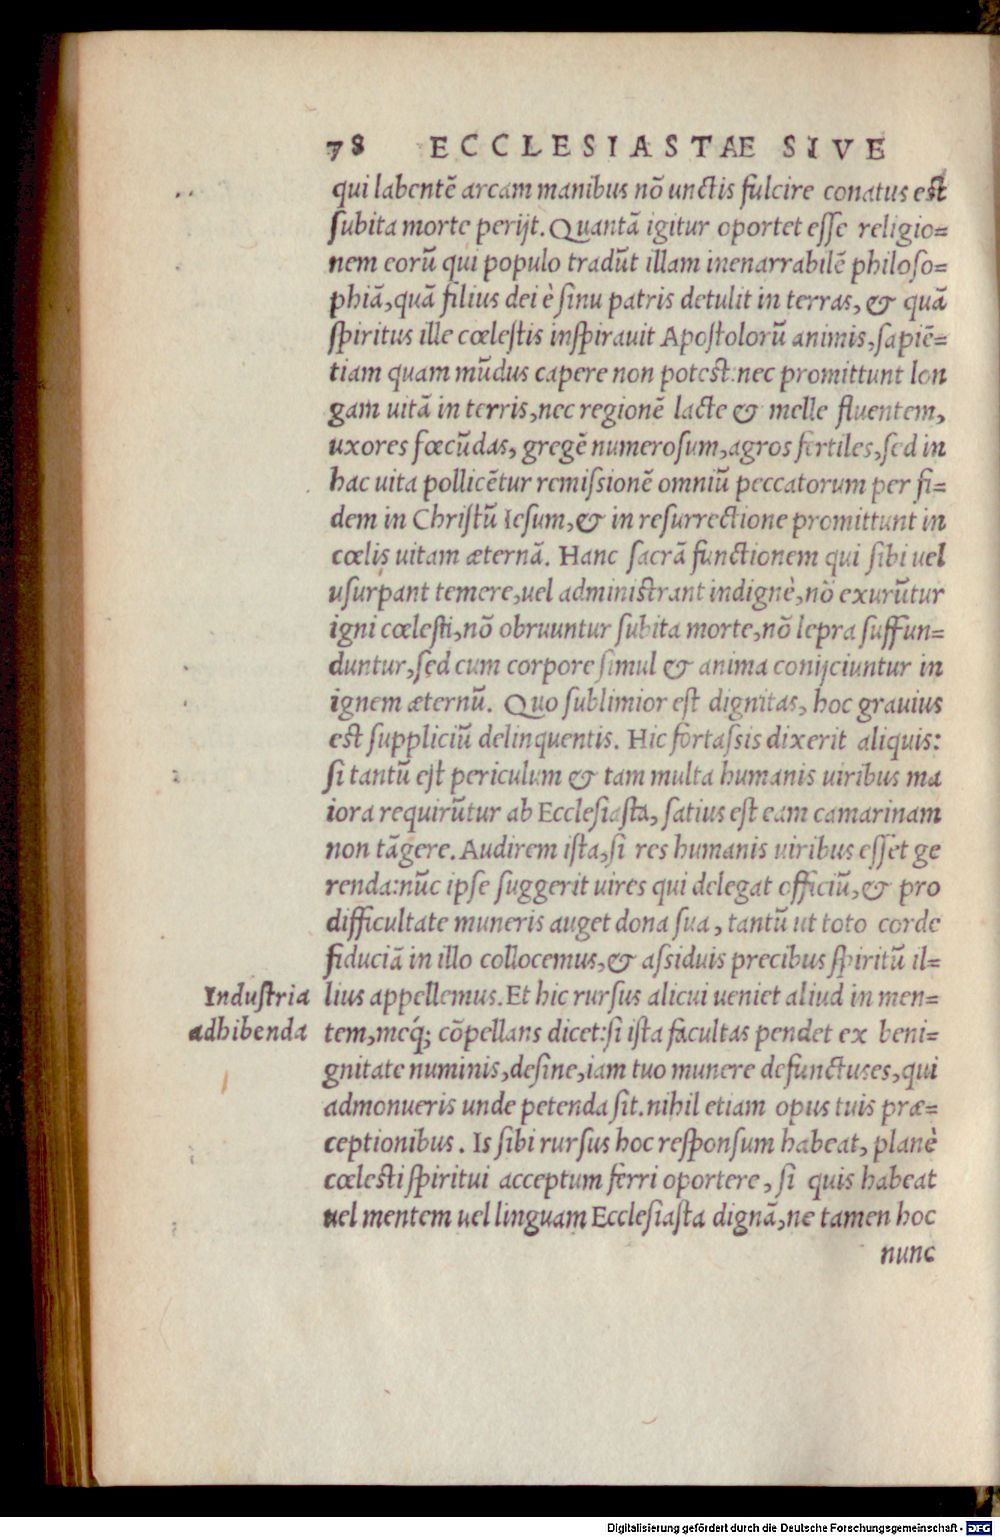 78 ECCLESIASTAE SIVE
qui labentē arcam manibus nō unctis fulcire conatus est
subita morte perijt. Quantā igitur oportet esse religio=
nem eorū qui populo tradūt illam inenarrabilē philoso=
phiā, quā filius dei è sinu patris detulit in terras, & quā
spiritus ille cœlestis inspirauit Apostolorū animis, sapiē=
tiam quam mūdus capere non potest: nec promittunt lon
gam uitā in terris, nec regionē lacte & melle fluentem,
uxores fœcūdas, gregē numerosum, agros fertiles, sed in
hac uita pollicētur remissionē omniū peccatorum per fi=
dem in Christū Iesum, & in resurrectione promittunt in
cœlis uitam æternā. Hanc sacrā functionem qui sibi uel
usurpant temere, uel administrant indignè, nō exurūtur
igni cœlesti, nō obruuntur subita morte, nō lepra suffun=
duntur, sed cum corpore simul & anima conijciuntur in
ignem æternū. Quo sublimior est dignitas, hoc grauius
est suppliciū delinquentis. Hic fortassis dixerit aliquis:
si tantū est periculum & tam multa humanis uiribus ma
iora requirūtur ab Ecclesiasta, satius est eam camarinam
non tāgere. Audirem ista, si res humanis uiribus esset ge
renda: nūc ipse suggerit uires qui delegat officiū, & pro
difficultate muneris auget dona sua, tantū ut toto corde
fiduciā in illo collocemus, & assiduis precibus spiritū il=
Industria adhibenda
lius appellemus. Et hic rursus alicui ueniet aliud in men=
tem, meq́; cōpellans dicet: si ista facultas pendet ex beni=
gnitate numinis, desine, iam tuo munere defunctus es, qui
admonueris unde petenda sit. nihil etiam opus tuis præ=
ceptionibus. Is sibi rursus hoc responsum habeat, planè
cœlesti spiritui acceptum ferri oportere, si quis habeat
uel mentem uel linguam Ecclesiasta dignā, ne tamen hoc
nunc
Digitalisierung gefördert durch die Deutsche Forschungsgemeinschaft - DFG